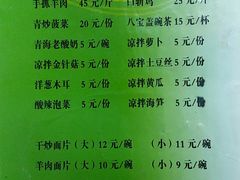 手抓羊肉 45元/斤 白斩鸡 25元/斤
青炒菠菜 20元/份 八宝盖碗茶 15元/杯
青海老酸奶 5元/碗 凉拌萝卜 5元/份
凉拌金针菇 5元/份 凉拌土豆丝 5元/份
洋葱木耳 5元/份 凉拌黄瓜 5元/份
酸辣泡菜 5元/份 凉拌海笋 5元/份
干炒面片(大)12元/碗 (小)11元/碗
羊肉面片(大)10元/碗 (小)9元/碗